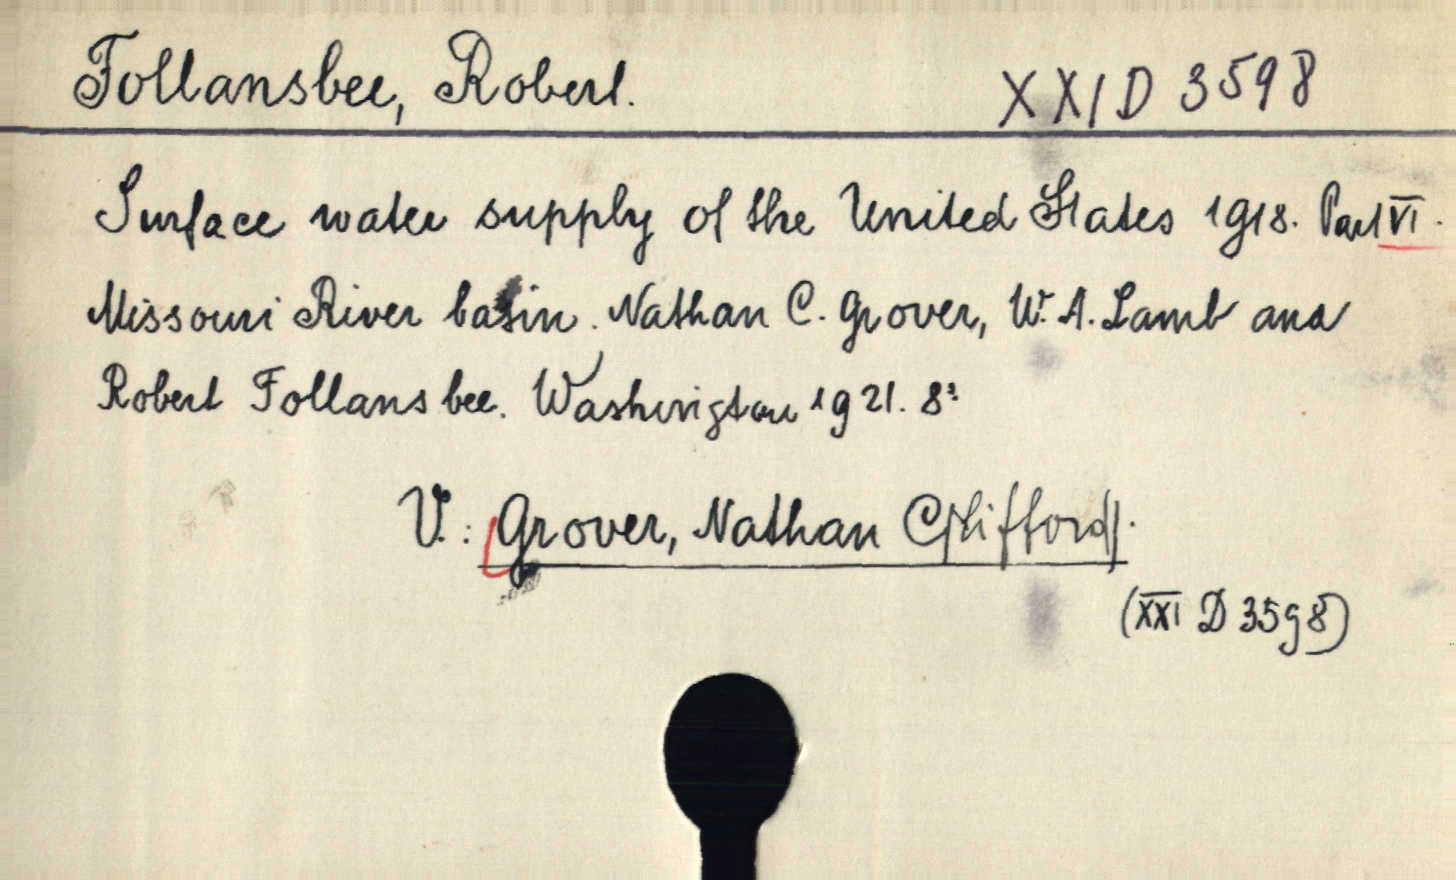 Follansbee, Robert. XXI D 3598
Surface water supply of the United States 1918. Part VI.
Missouri River basin. Nathan C. Grover, W. A. Lamb and
Robert Follansbee. Washington 1921. 8º
V.: Grover, Nathan C[lifford].
(XXI D 3598)